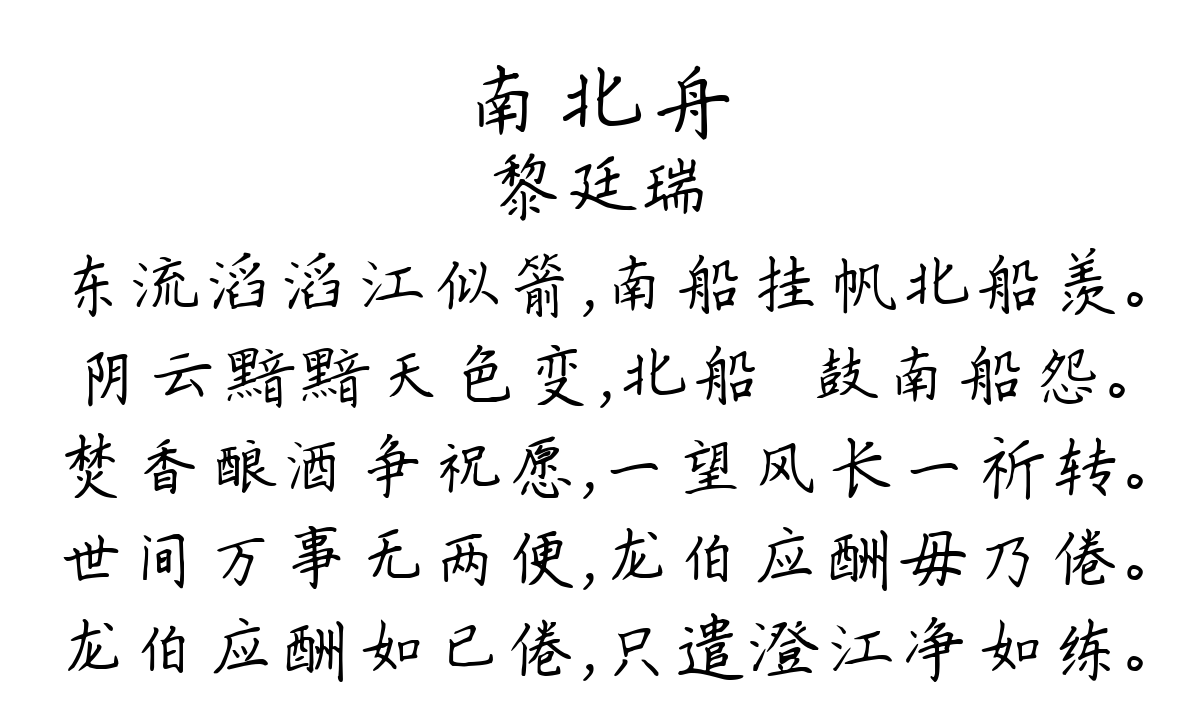 南北舟
黎廷瑞
东流滔滔江似箭,南船挂帆北船羡。
阴云黯黯天色变,北船 鼓南船怨。
焚香酿酒争祝愿,一望风长一祈转。
世间万事无两便,龙伯应酬毋乃倦。
龙伯应酬如已倦,只遣澄江净如练。